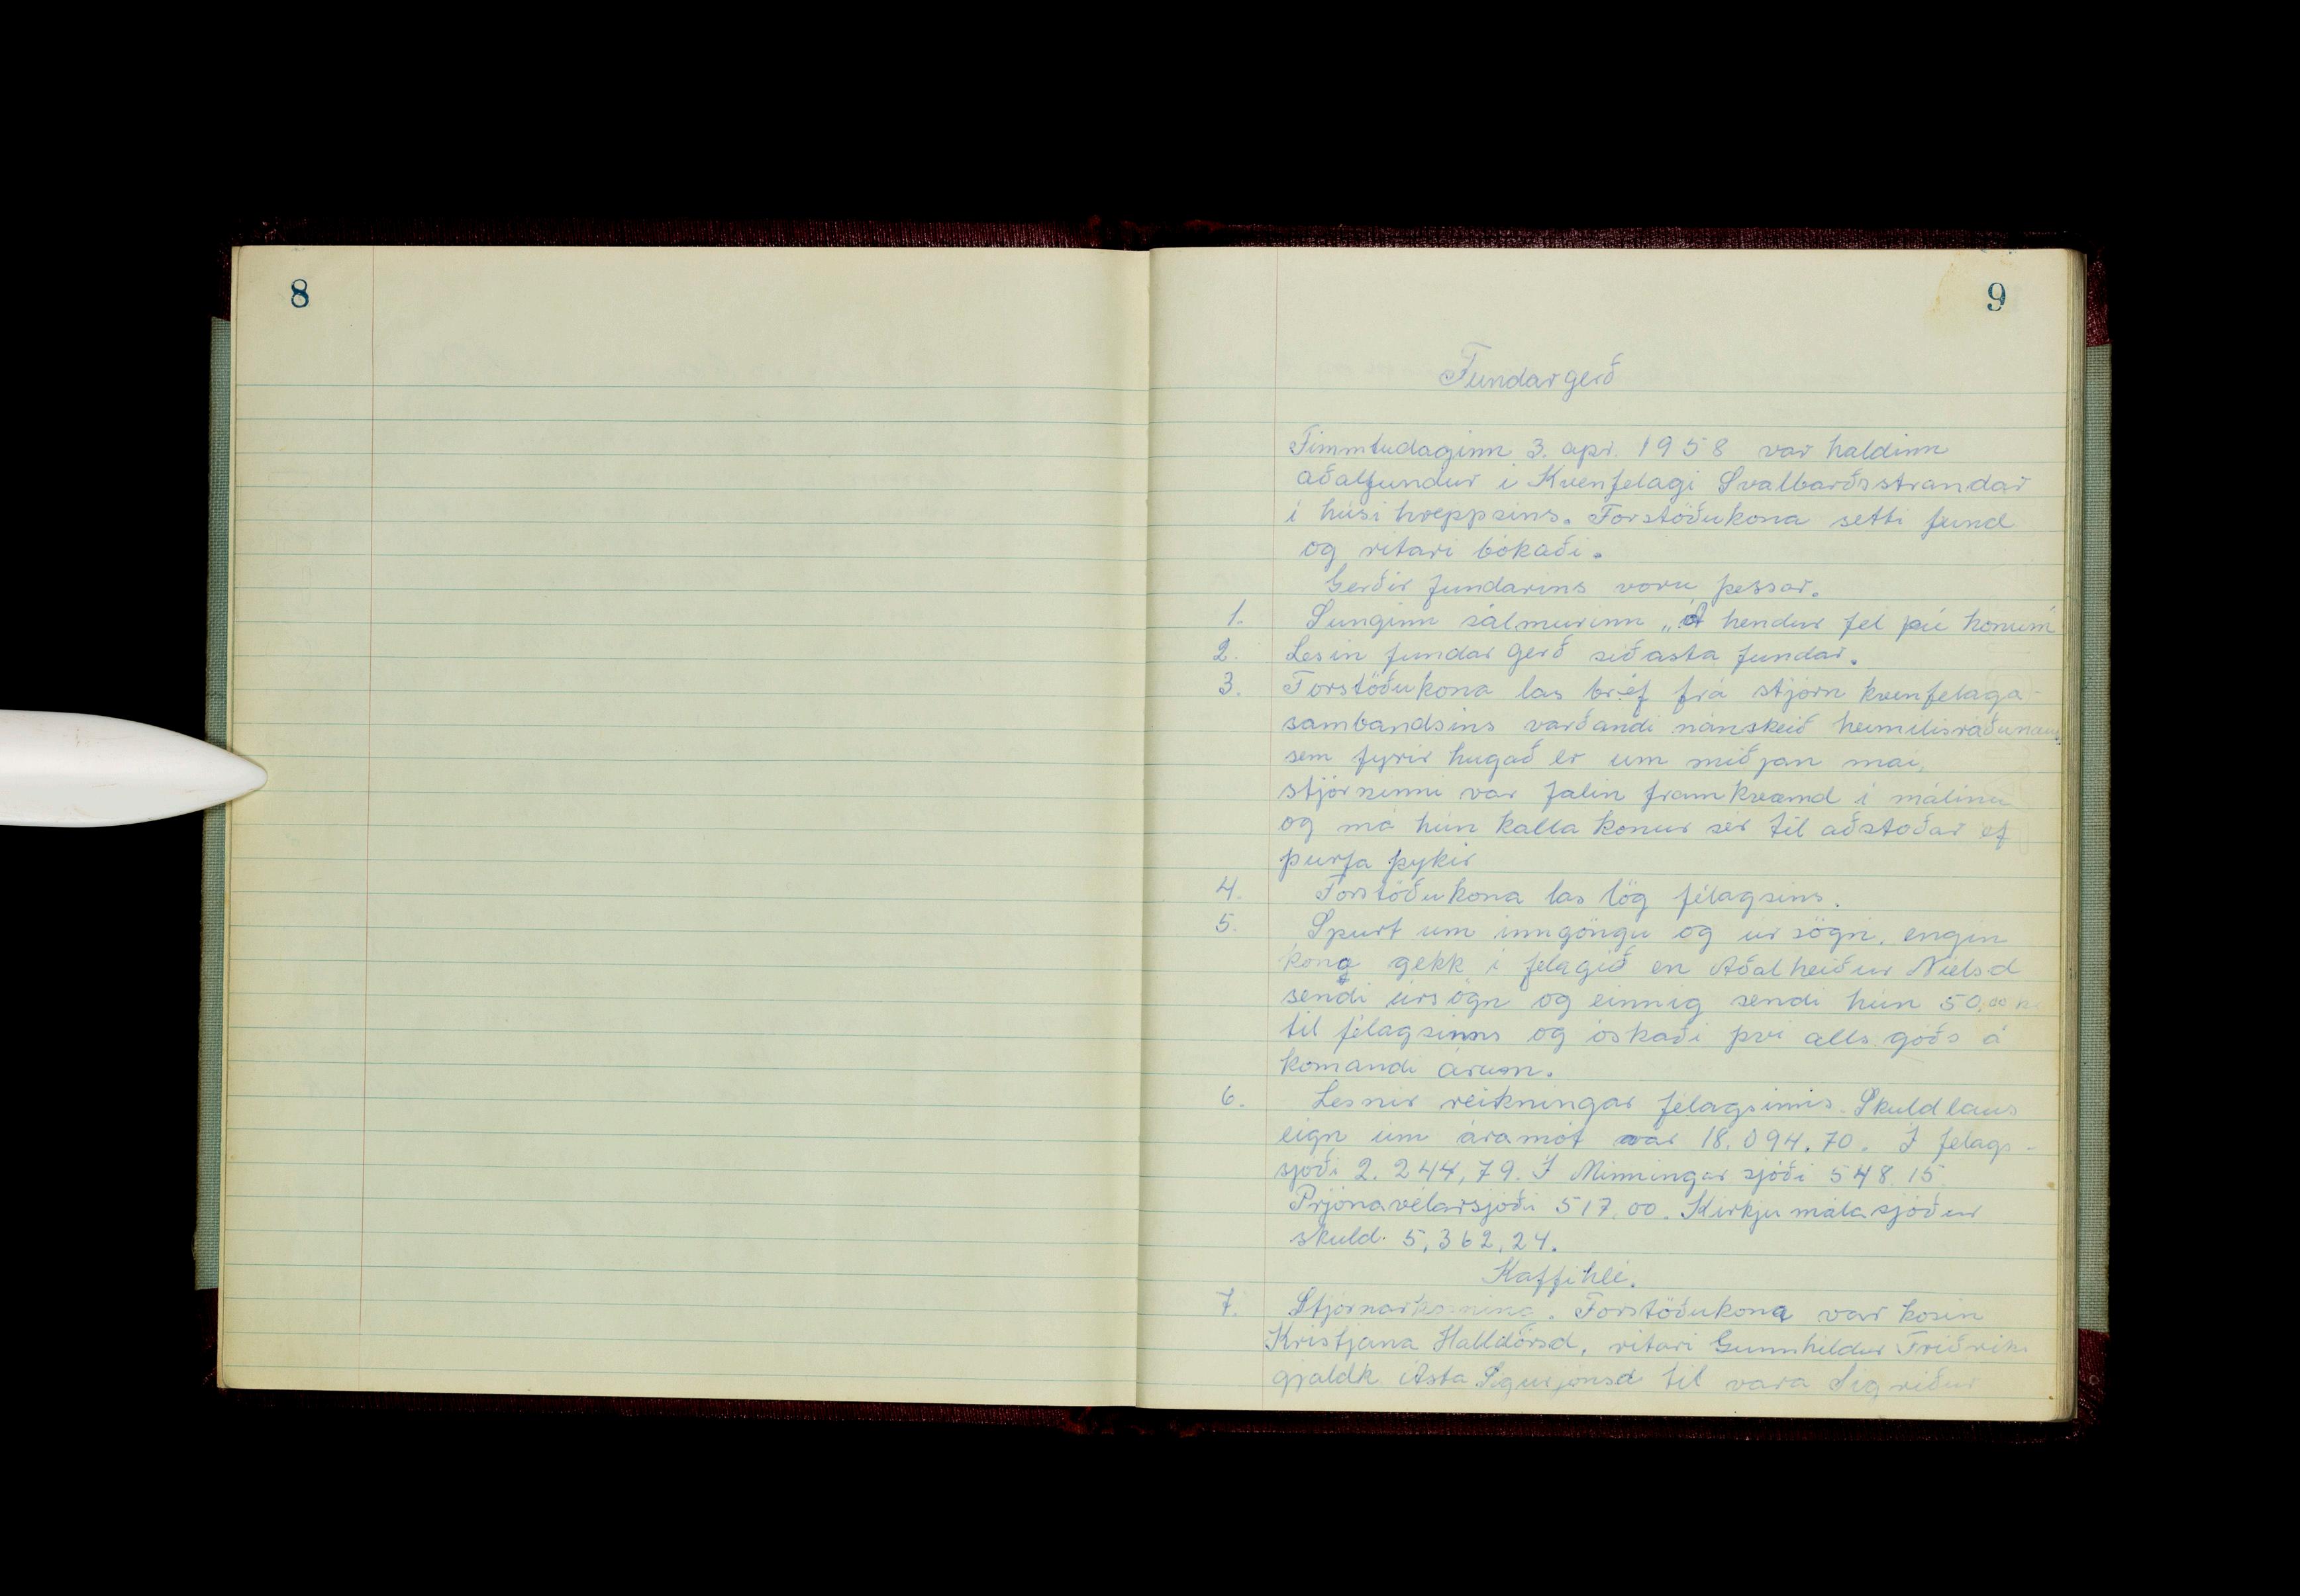 8
9
Fundargerð
Fimmtudaginn 3. apr. 1958 var haldinn
aðalfundur i Kvenfelagi Svalbarðsstrandar
i húsi hreppsins. Forstöðukona setti fund
og ritari bókaði.
Gerðir fundarins voru þessar.
1. Sunginn sálmurinn „Á hendur fel þú honum"
2. Lesin fundar gerð siðasta fundar.
3. Forstöðukona las bréf frá stjórn kvenfelaga-
sambandsins varðandi nánskeið heimilisráðunaut
sem fyrir hugað er um miðjan mai,
stjórninni var falin framkvæmd i málinu
og má hún kalla konur sér til aðstoðar ef
þurfa þykir
4. Forstöðukona las lög félagsins.
5. Spurt um inngöngu og ur sögn. engin
kona gekk i felagið en Aðalheiður Nielsd
sendi úrsögn og einnig sendi hún 50.00
til félagsinns og óskaði þvi alls góðs á
komandi árum.
6. Lesnir reikningar félagsinnis. Skuldlaus
eign um áramót var 18.094.70. Í felags-
sjóði 2.244,79. Í Minningar sjóði 548.15
Prjónavélarsjóði 517.00. Kirkjumálasjóður
skuld. 5,362,24.
Kaffihlé.
7. Stjórnarkosning. Forstöðukona var kosin
Kristjana Halldórsd, ritari Gunnhildur Friðriks
gjaldk Ásta Sigurjónsd til vara Sigriður